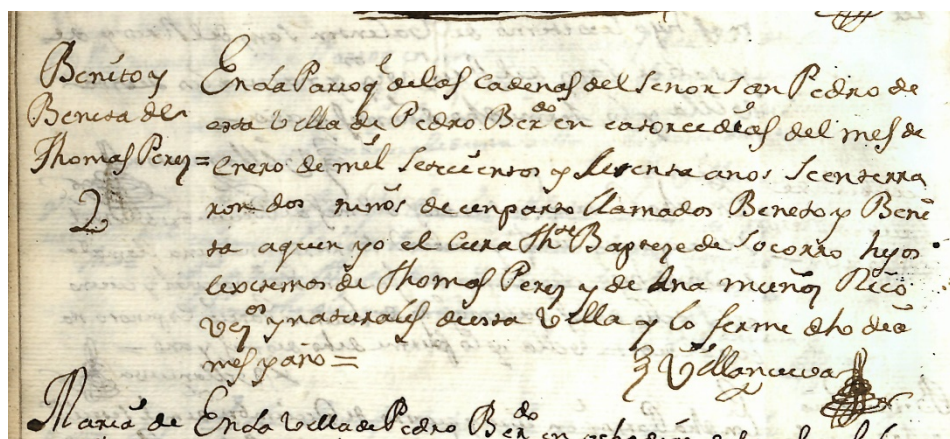 Benito y
Benita de
Thomas Perez =
2
En la Parroq.l de las Cadenas del Senor San Pedro de
esta Villa de Pedro Ber.do en catorce dias del mes de
Enero de mil setecientos y sesenta anos se enterra
ron dos niños de un parto llamados Benito y Beni
ta a quien yo el Cura Th.te Baptize de Socorro hijos
lexitimos de Thomas Perez y de Ana muñoz Rico
Vez.os y naturales de esta Villa y lo firme dho dia
mes y año =
Villanueva
Maria de
En la Villa de Pedro Ber.do en